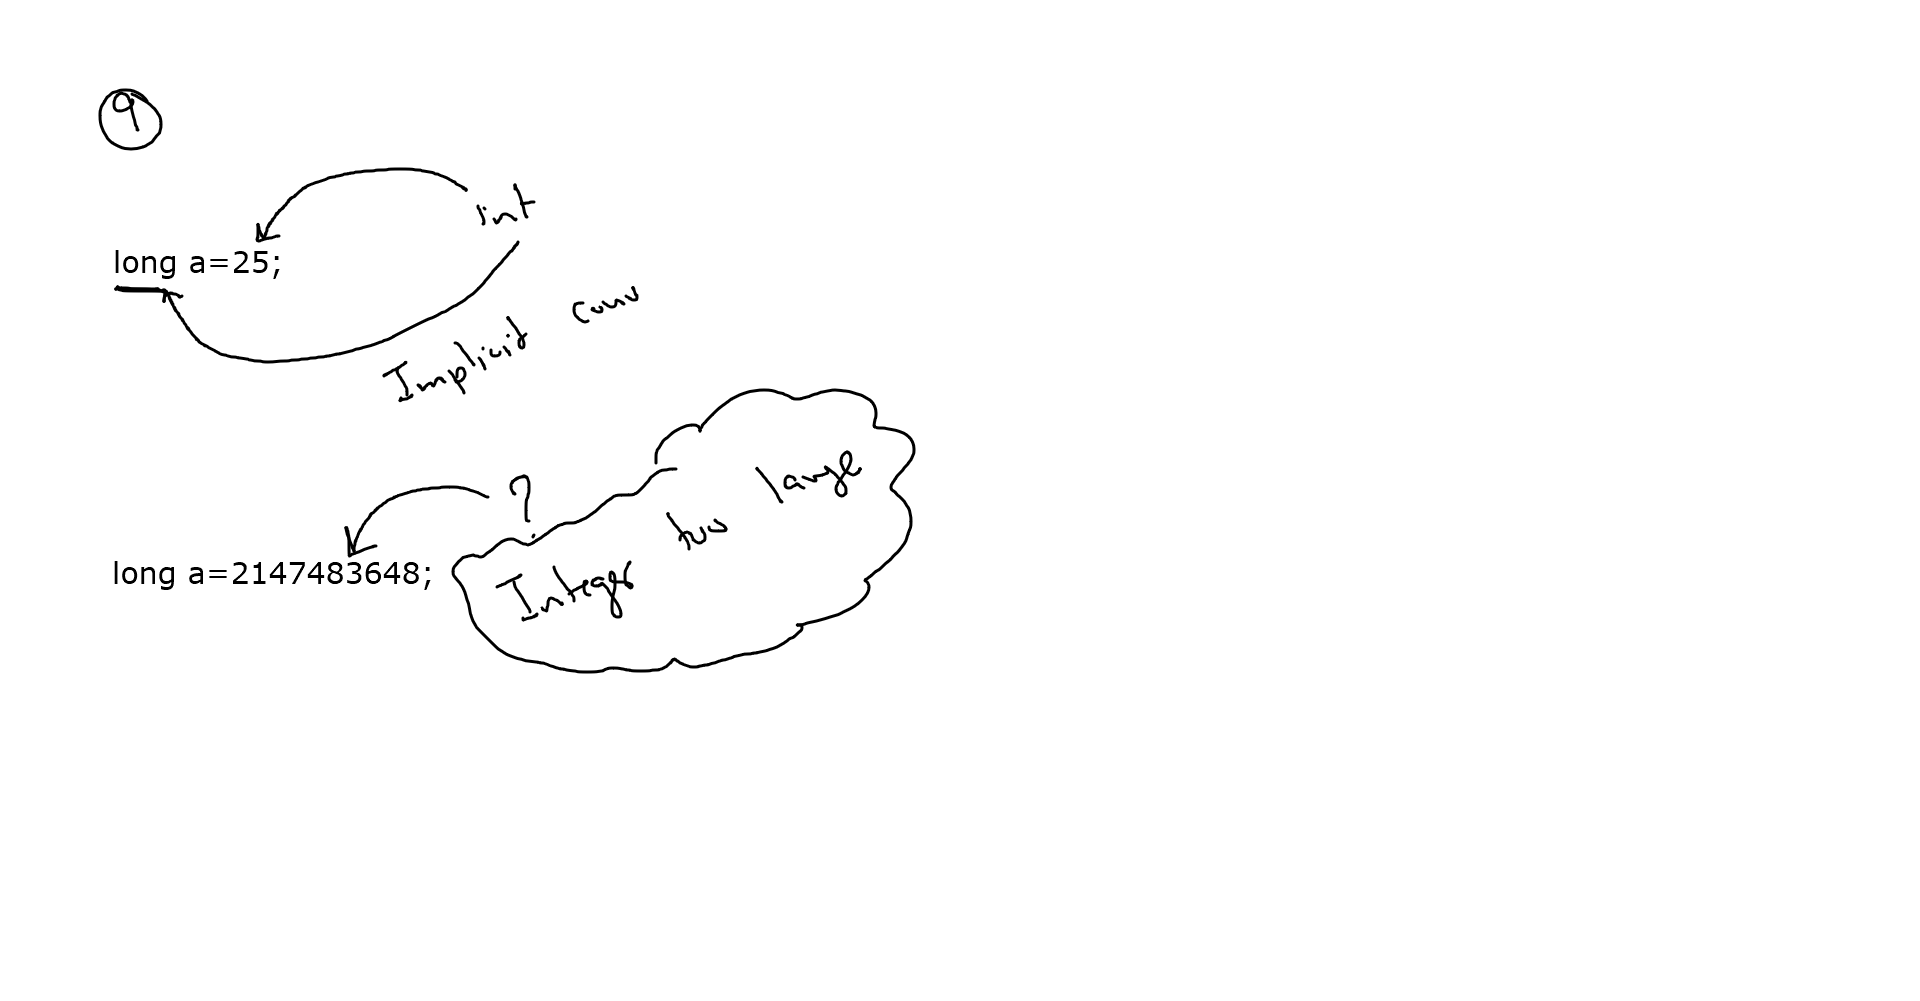 9
int
long a=25;
Implicit conv
?
long a=2147483648;
Integer too large